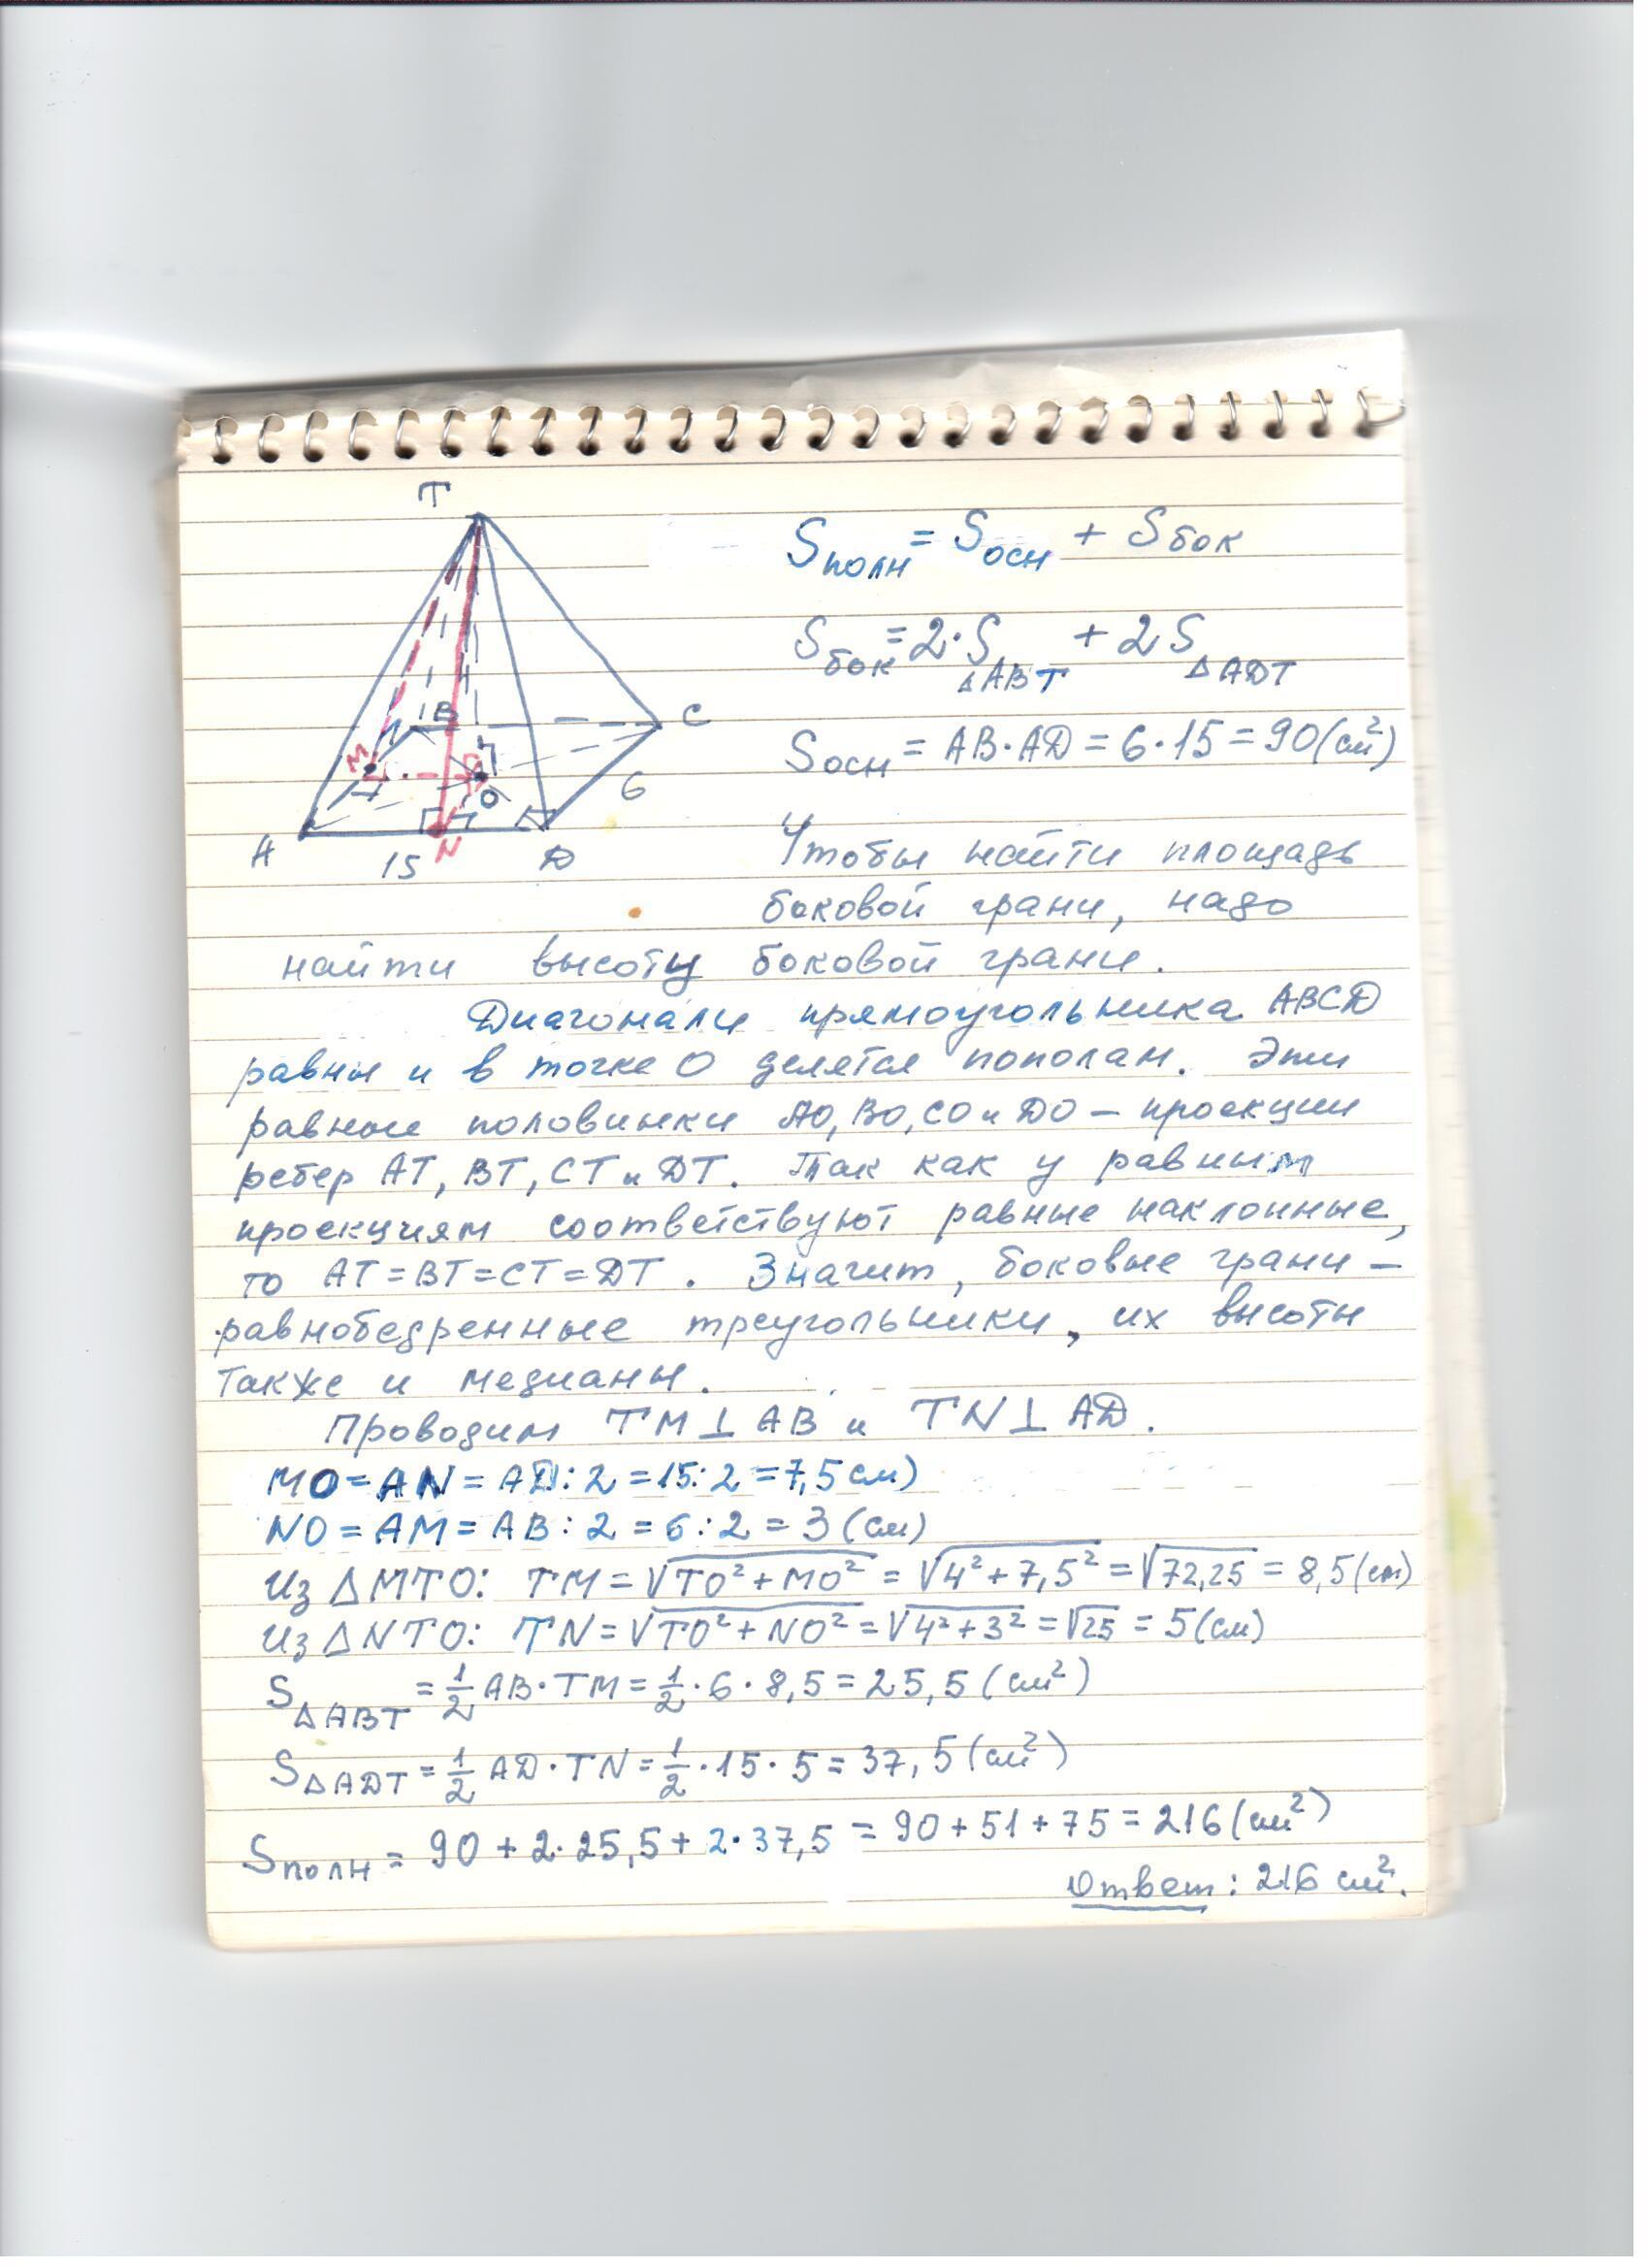 T
Sполн = Sосн + Sбок
Sбок = 2·S△ABT + 2S△ADT
B
C
M
Sосн = AB·AD = 6·15 = 90 (см²)
O
6
A
15
N
D
Чтобы найти площадь
боковой грани, надо
найти высоту боковой грани.
Диагонали прямоугольника ABCD
равны и в точке O делятся пополам. Эти
равные половинки AO, BO, CO и DO – проекции
ребер AT, BT, CT и DT. Так как у равным
проекциям соответствуют равные наклонные,
то AT = BT = CT = DT. Значит, боковые грани –
равнобедренные треугольники, их высоты
также и медианы.
Проводим TM ⊥ AB и TN ⊥ AD.
MO = AN = AD : 2 = 15 : 2 = 7,5 см)
NO = AM = AB : 2 = 6 : 2 = 3 (см)
Из △MTO: TM = √TO² + MO² = √4² + 7,5² = √72,25 = 8,5 (см)
Из △NTO: TN = √TO² + NO² = √4² + 3² = √25 = 5 (см)
S△ABT = 1/2 AB · TM = 1/2 · 6 · 8,5 = 25,5 (см²)
S△ADT = 1/2 AD · TN = 1/2 · 15 · 5 = 37,5 (см²)
Sполн = 90 + 2·25,5 + 2·37,5 = 90 + 51 + 75 = 216 (см²)
Ответ: 216 см².